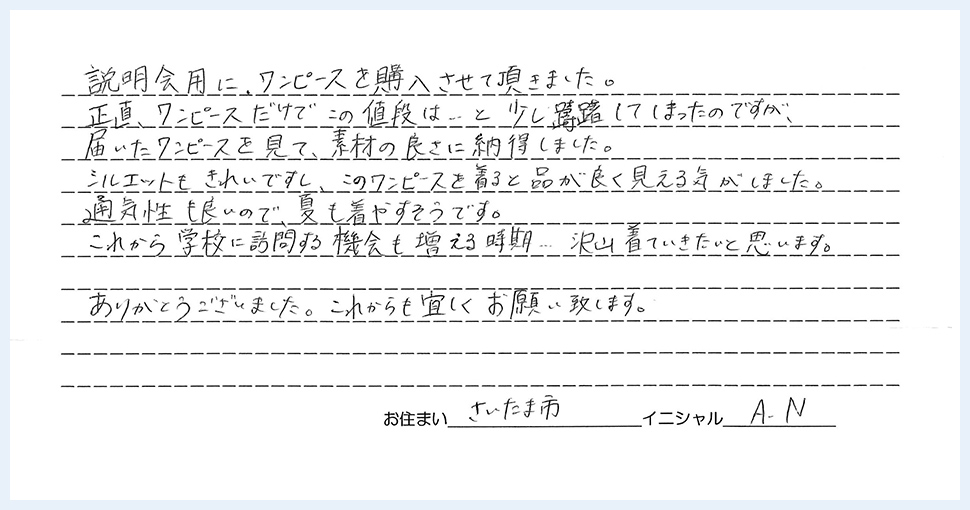 説明会用に、ワンピースを購入させて頂きました。
正直、ワンピースだけでこの値段は…と少し躊躇してしまったのですが、
届いたワンピースを見て、素材の良さに納得しました。
シルエットもきれいですし、このワンピースを着ると品が良く見える気がしました。
通気性も良いので、夏も着やすそうです。
これから学校に訪問する機会も増える時期…沢山着ていきたいと思います。
ありがとうございました。これからも宜しくお願い致します。
お住まい さいたま市 イニシャル A.N